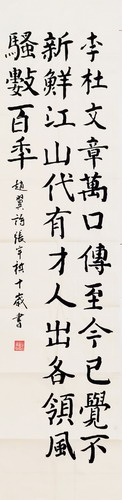 李杜文章萬口傳至今已覺不
新鮮江山代有才人出各領風
騷數百秊
趙翼詩張宇十歲書